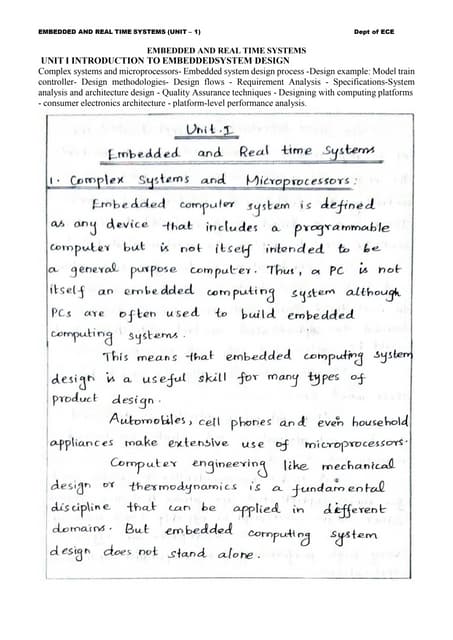 EMBEDDED AND REAL TIME SYSTEMS (UNIT – 1) Dept of ECE
EMBEDDED AND REAL TIME SYSTEMS
UNIT I INTRODUCTION TO EMBEDDEDSYSTEM DESIGN
Complex systems and microprocessors- Embedded system design process -Design example: Model train
controller- Design methodologies- Design flows - Requirement Analysis - Specifications-System
analysis and architecture design - Quality Assurance techniques - Designing with computing platforms
- consumer electronics architecture - platform-level performance analysis.
Unit-I
Embedded and Real time Systems
1. Complex Systems and Microprocessors:
Embedded computer system is defined
as any device that includes a programmable
computer but is not itself intended to be
a general purpose computer. Thus, a PC is not
itself an embedded computing system although
PCs are often used to build embedded
computing systems.
This means that embedded computing system
design is a useful skill for many types of
product design.
Automobiles, cell phones and even household
appliances make extensive use of microprocessors.
Computer engineering like mechanical
design or thermodynamics is a fundamental
discipline that can be applied in different
domains. But embedded computing system
design does not stand alone.